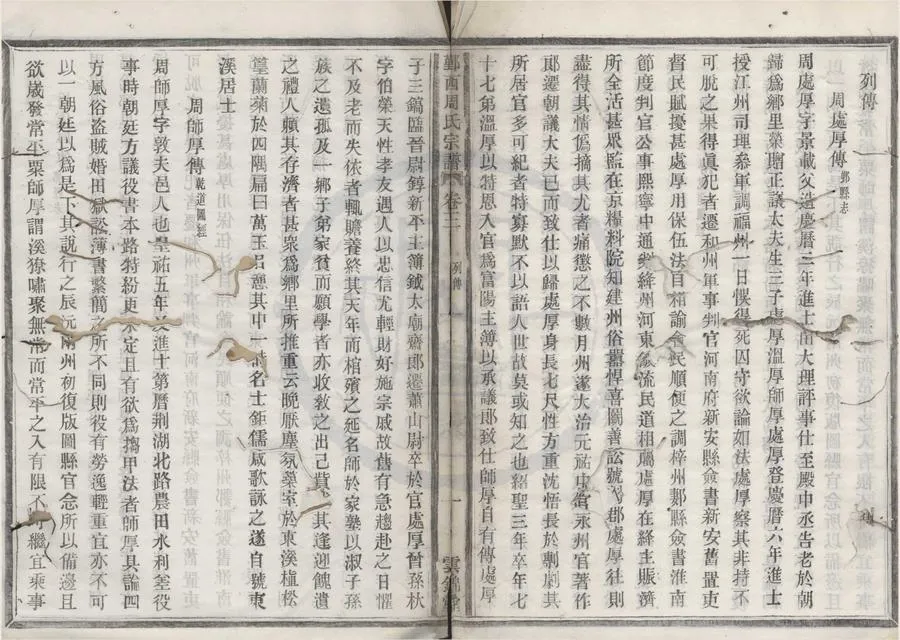 列傳
周處厚傳 鄞縣志
周處厚字景載父造慶曆二年進士由大理評事仕至殿中丞告老於朝
歸爲鄉里榮贈正議大夫生三子處厚溫厚師厚處厚登慶曆六年進士
授江州司理叅軍調福州一日慔得死囚守欲論如法處厚察其非持不
可脫之果得眞犯者遷和州軍事判官河南府新安縣僉書新安舊置吏
督民賦擾甚處厚用保伍法自相諭 民順便之調梓州郪縣僉書淮南
節度判官公事熙寧中通 絳州河東 流民道相屬處厚在絳主賑濟
所全活甚眾監在京糧料院知建州俗嚚悍喜鬭善訟號 郡處厚往則
盡得其情僞摘其尤者痛懲之不數月州遂大治元祐中 永州官著作
郞遷朝議大夫已而致仕以歸處厚身長七尺性方重沈悟長於剸劇其
所居官多可紀者特寡默不以語人世故莫或知之也紹聖三年卒年七
十七弟溫厚以特恩入官爲富陽主簿以承議郞致仕師厚自有傳處厚
鄞西周氏宗譜 卷三 列傳 一 雲錦堂
子三鎬臨晉尉錞新平主簿鉞太廟齋郞遷蕭山尉卒於官處厚曾孫秋
字伯榮天性孝友遇人以忠信尤輕財好施宗戚故舊有急趨赴之日懼
不及老而失依者輒贍養終其天年而棺殯之延名師於家塾以淑子孫
族之遺孤及一鄉子弟家貧而願學者亦收敎之出己 其逢迎餽遺
之禮人賴其存濟者甚衆爲鄉里所推重云晚厭塵氛築室於東溪植松
篁蘭菊於四隅扁曰萬玉 憩其中一時名士鉅儒咸歌詠之遂自號東
溪居士
周師厚傳 乾道圖經
周師厚字敦夫邑人也皇祐五年 進士第曆荆湖北路農田水利差役
事時朝廷方議役書本路特紛更未定且有欲爲搊甲法者師厚具論四
方風俗盜賊婚田獄訟薄書繫簡 所不同則役有勞逸輕重宜亦不可
以一朝廷以爲是下其說行之辰沅 州初復版圖縣官念所以備邊且
欲歲發常平粟師厚謂溪獠嘯聚無常而常平之入有限不 繼宜乘事